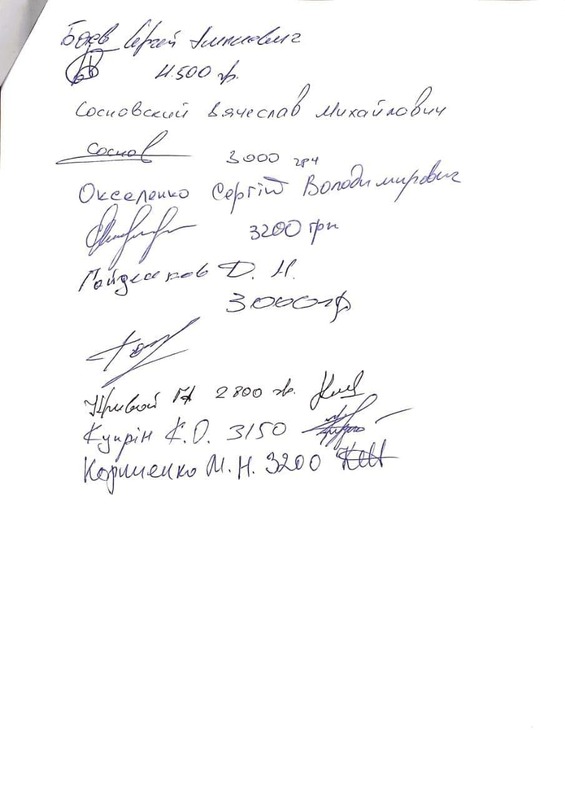 Боев Сергей
4.500 гр.
Сосновский Вячеслав Михайлович
Соснов 3000 грн
Окселенко Сергій Володимирович
3200 грн
Д. Н.
3000гр
Кривой 2800 гр.
Купрін К.О. 3150
Корниенко М.Н. 3200